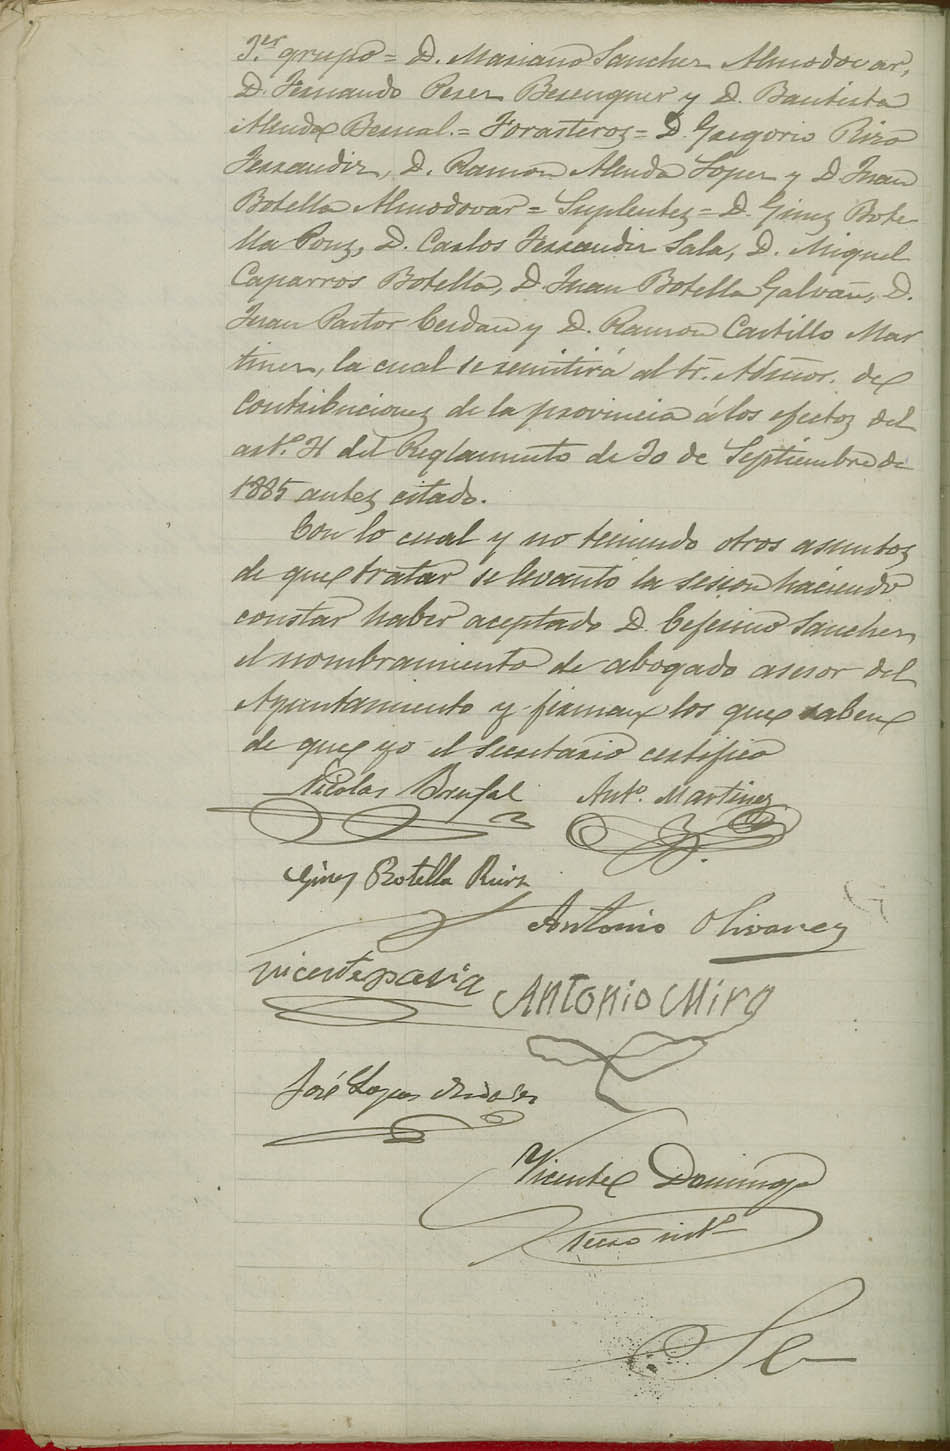 3.er grupo = D. Mariano Sanchez Almodovar,
D. Fernando Perez Berenguer y D. Bautista
Alenda Bernal. = Forasteros = D. Gregorio Rizo
Ferrandiz, D. Ramon Alenda Lopez y D. Juan
Botella Almodovar = Suplentes = D. Gines Bote-
lla Pons, D. Carlos Ferrandiz Sala, D. Miguel
Caparros Botella, D. Juan Botella Galvañ, D.
Juan Pastor Cerdan y D. Ramon Castillo Mar
tinez, la cual se remitirá al Sr. Admor. de
Contribuciones de la provincia á los efectos del
art.o del Reglamento de 30 de Septiembre de
1885 antes citado.
Con lo cual y no teniendo otros asuntos
de que tratar se levantó la sesion haciendo
constar haber aceptado D. Ceferino Sanchez
el nombramiento de abogado asesor del
Ayuntamiento y firman los que saben
de que yo el Secretario certifico
Nicolas Brufal Ant.o Martinez
Gines Botella Ruiz
Antonio Olivares
Vicente pavia
Antonio Mira
José Lopez
Vicente Domingo
Secro int.o